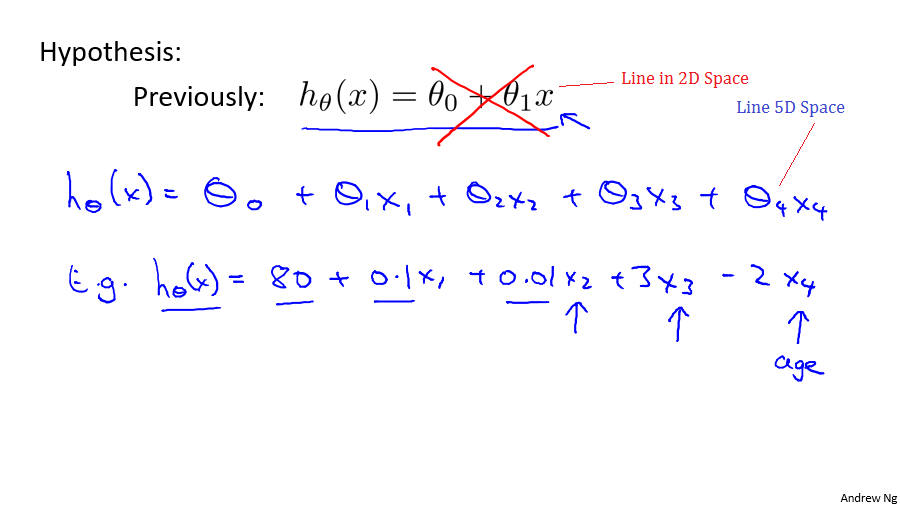 Hypothesis:
Previously: hθ(x) = θ0 + θ1x
Line in 2D Space
Line 5D Space
hθ(x) = θ0 + θ1x1 + θ2x2 + θ3x3 + θ4x4
E.g. hθ(x) = 80 + 0.1x1 + 0.01x2 + 3x3 - 2x4
age
Andrew Ng